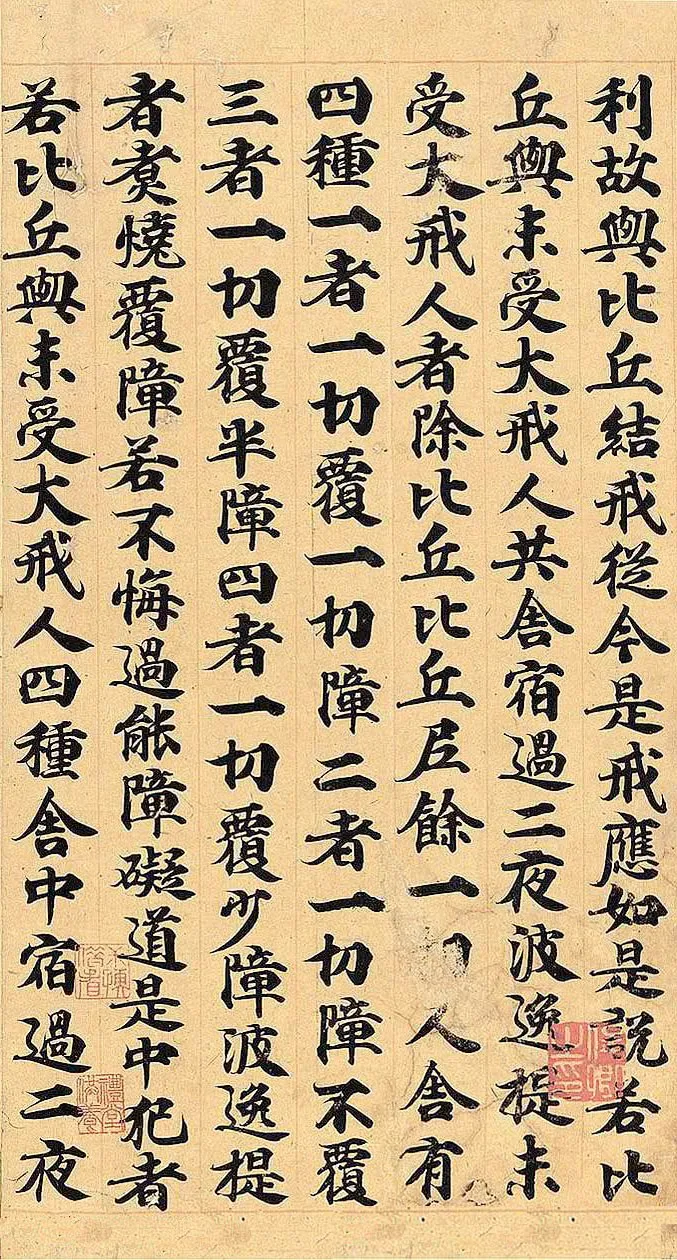 利故與比丘結戒從今是戒應如是說若比
丘與未受大戒人共舍宿過二夜波逸提未
受大戒人者除比丘比丘尼餘一切人舍有
四種一者一切覆一切障二者一切障不覆
三者一切覆半障四者一切覆少障波逸提
者煑燒覆障若不悔過能障礙道是中犯者
若比丘與未受大戒人四種舍中宿過二夜